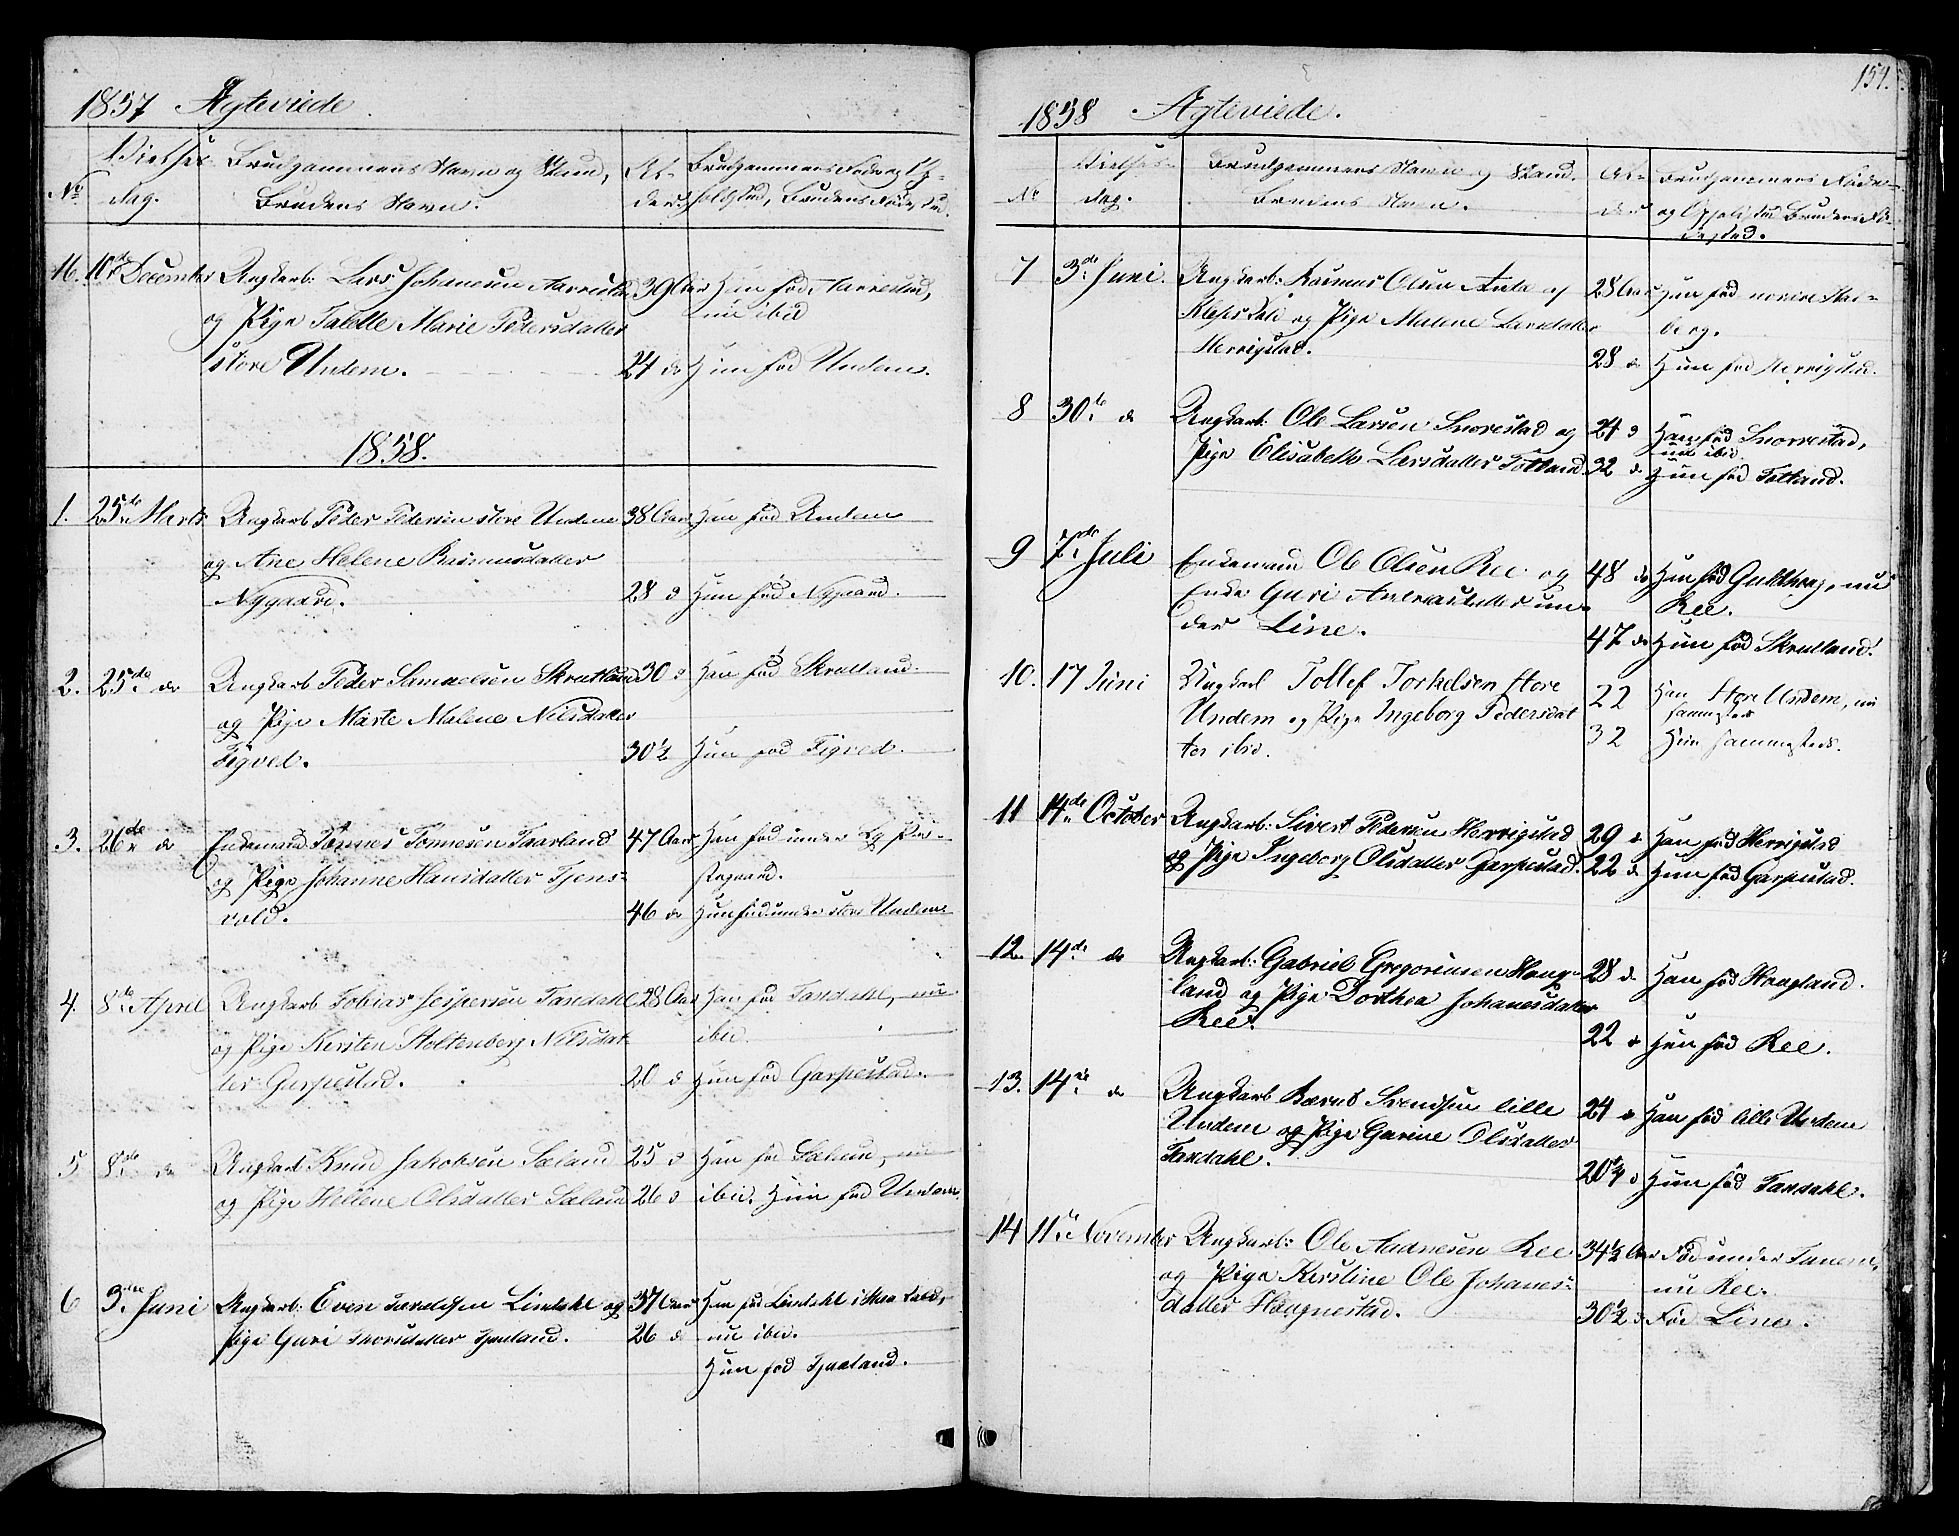 1857 Ægteviede.
No
Vielses-
dag.
Brudgommens Navn og Stand,
Brudens Navn.
Al-
der.
Brudgommens Føde og Op-
holdsted, Brudens Fødested.
16. 10de December
Ungkarl: Lars Johanesen Aarrestad
og Pige Talette Marie Pedersdatter
store Undem.
39 Aar
24 do
Han fød Aarrestad,
nu ibid
Hun fød Undem.
1858.
1. 25de Marts
Ungkarl Peder Pedersen store Undem
og Ane Helene Rasmusdatter
Nygaard.
38 Aar
28 d
Han fød Undem
Hun fød Nygaard.
2. 25de do
Ungkarl Peder Samuelsen Skretland
og Pige Märte Malene Nilsdatter
Tigved.
30 d
30½
Han fød Skretland.
Hun fød Tigved.
3. 26de do
Enkemand Tønnes Tønnesen Taarland
og Pige Johanne Hansdatter Tjens-
vold.
47 Aar
46 do
Han fød under Ly Præ-
stegaard.
Hun fød under store Undem
4. 8de April
Ungkarl Tobias Jespersen Taxdahl
og Pige Kirsten Stoltenberg Nilsdat-
ter Garpestad.
28 Aar
20 d
Han fød Taxdahl, nu
ibid.
Hun fød Garpestad.
5 8de do
Ungkarl Knud Jakobsen Sæland
og Pige Hellene Olsdatter Sæland
25 d
26 d
Han fød Sælan, nu
ibid. Hun fød Undem.
6 3die Juni
Ungkarl: Even Lindahl og
Pige Guri Thorsdatter Tjaaland.
37 Aar
26 d
Han fød Lindahl i
nu ibid.
Hun fød Tjaaland.
151.
1858 Ægteviede.
No
Vielses-
dag.
Brudgommens Navn og Stand.
Brudens Navn.
Al-
der
Brudgommens Føde-
og Opholdsted Brudens Fø-
dested.
7 3de Juni.
Ungkarl: Rasmus Olsen Anda af
Klepsrdal og Pige Malene Larsdatter
Herrigstad.
28 Aar
28 d
Han fød nordre Sta-
berg.
Hun fød Herrigstad.
8 30te do
Ungkarl: Ole Larsen Snorestad og
Pige Elisabeth Larsdatter Totland
24 d
32 d
Han fød Snorrestad,
nu ibid.
Hun fød Totland.
9 7de Juli
Enkemand Ole Olsen Ree og
Enke Guri Andreasdatter un-
der Line.
48 do
47 do
Han fød Guldberg, nu
Ree.
Hun fød Skretland.
10. 17 Juni
Ungkarl Tollef Torkelsen Store
Undem og Pige Ingeborg Pedersdat
ter ibid.
22
32
Han Store Undem, nu
sammested
Hun sammesteds.
11 14de October
Ungkarl: Sivert Pedersen Herrigstad
og Pige Ingeborg Olsdatter Garpestad.
29 d
22 d
Han fød Herrigstad
Hun fød Garpestad.
12. 14de do
Ungkarl: Gabriel Gregoriusen Haug-
land og Pige Dorthea Johanesdatter
Ree.
28 d
22 d
Han fød Haugland.
Hun fød Ree.
13. 14de do
Ungkarl Svendsen lille
Undem og Pige Garine Olsdatter
Taxdahl.
24 d
20¼ d
Han fød lille Undem
Hun fød Taxdahl.
14 11te November
Ungkarl: Ole Aadnesen Ree
og Pige Kirstine Ole Johanes-
datter Haugnestad.
34½ Aar
30½ d
Fød under Tunem,
nu Ree.
Fød Line.